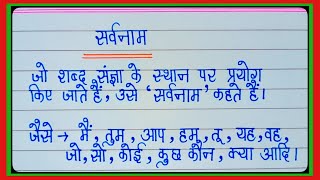 सर्वनाम
जो शब्द संज्ञा के स्थान पर प्रयोग
किए जाते हैं, उसे 'सर्वनाम' कहते हैं।
जैसे → मैं, तुम, आप, हम, तू, यह, वह,
जो, सो, कोई, कुछ कौन, क्या आदि।